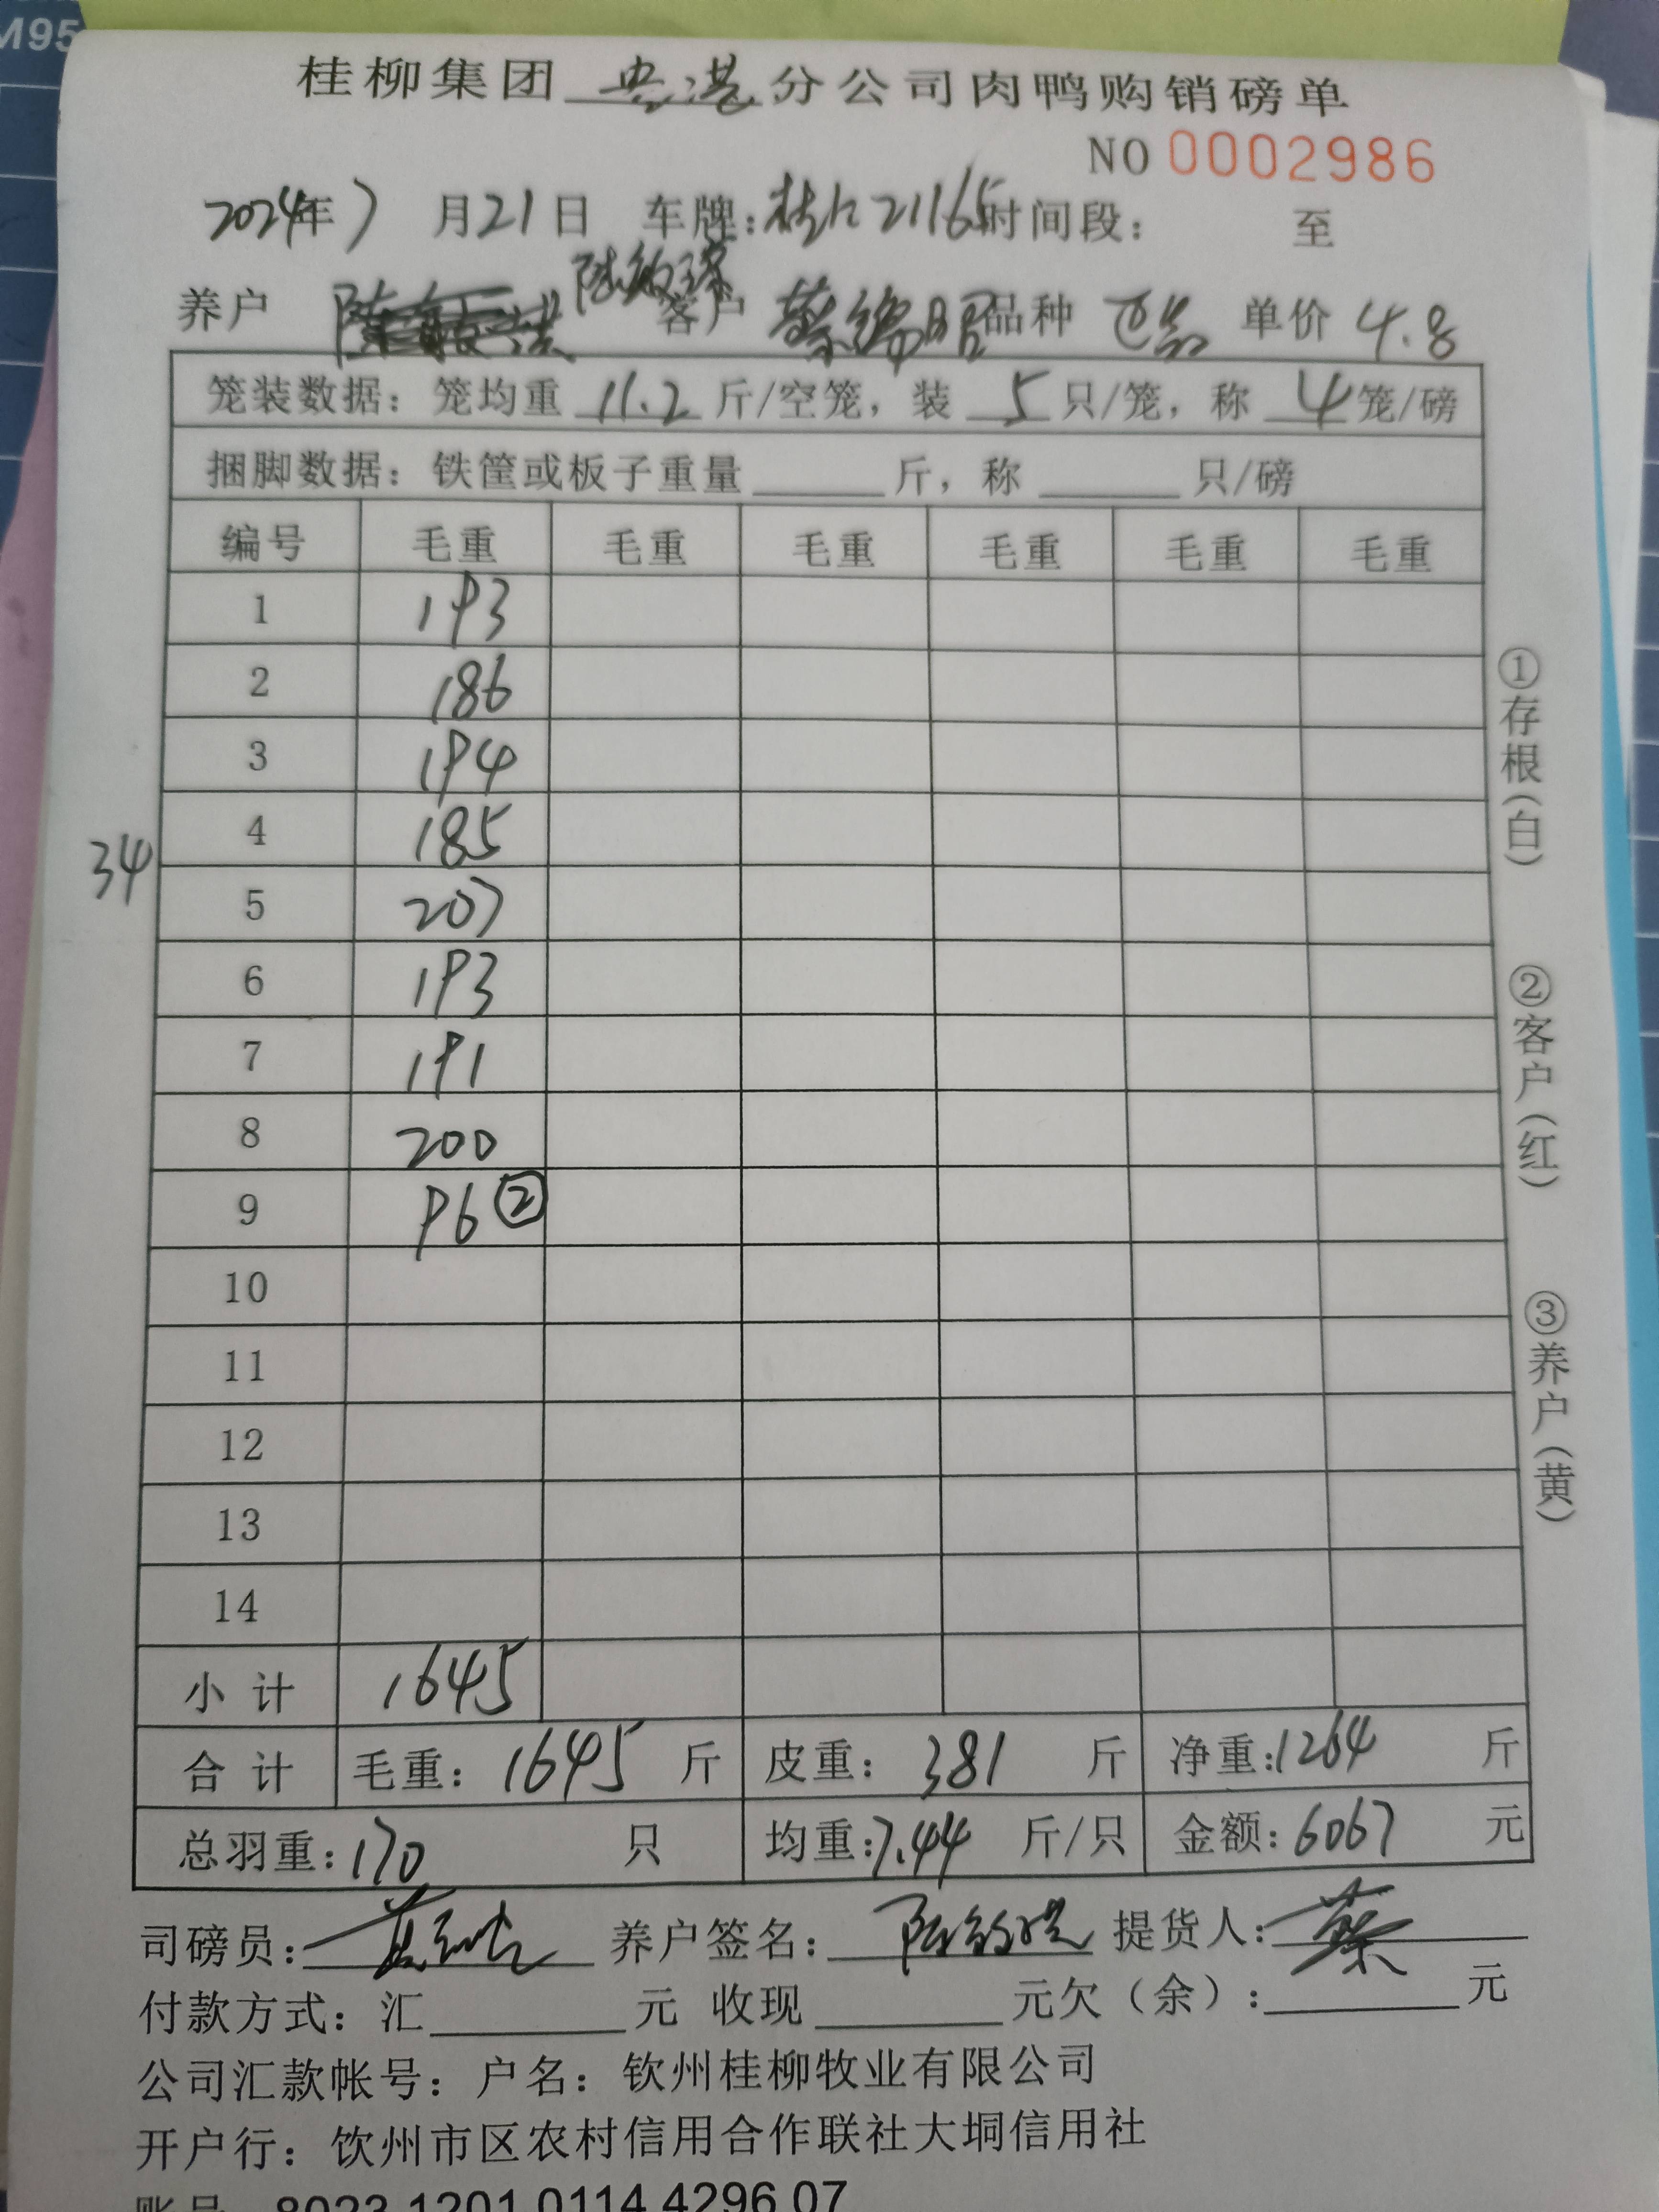 M95
桂柳集团 贵港 分公司肉鸭购销磅单
NO 0002986
2024年 7 月21日 车牌: 21165 时间段: 至
养户 客户 品种 单价 4.8
笼装数据: 笼均重 11.2 斤/空笼, 装 5 只/笼, 称 4 笼/磅
捆脚数据: 铁筐或板子重量 斤, 称 只/磅
编号 毛重 毛重 毛重 毛重 毛重 毛重
1 193
2 186
3 194
4 185
34
5 207
6 193
7 191
8 200
9 96 ②
10
11
12
13
14
小 计 1645
合 计 毛重: 1645 斤 皮重: 381 斤 净重: 1264 斤
总羽重: 170 只 均重: 7.44 斤/只 金额: 6067 元
司磅员: 养户签名: 提货人: 蔡
付款方式: 汇 元 收现 元欠(余): 元
公司汇款帐号: 户名: 钦州桂柳牧业有限公司
开户行: 钦州市区农村信用合作联社大垌信用社
账号 8023 1201 0114 4296 07
①存根(白)
②客户(红)
③养户(黄)